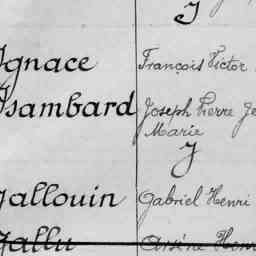 I
Ignace François Victor
Isambard Joseph Pierre Je
Marie
J
Jallouin Gabriel Henri
Jallu Arsène Henri